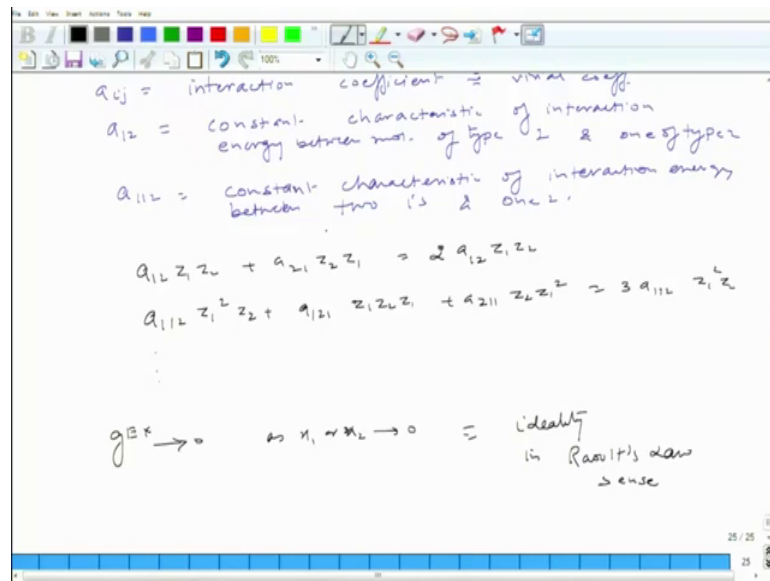 File Edit View Insert Actions Tools Help
B I
100%
a_ij = interaction coefficient ≡ virial coeff.
a_12 = constant characteristic of interaction
energy between mol. of type 1 & one of type 2
a_112 = constant characteristic of interaction energy
between two 1's & one 2.
a_12 z_1 z_2 + a_21 z_2 z_1 = 2 a_12 z_1 z_2
a_112 z_1^2 z_2 + a_121 z_1 z_2 z_1 + a_211 z_2 z_1^2 = 3 a_112 z_1^2 z_2
g^Ex → 0 as x_1 or x_2 → 0 ≡ ideality
in Raoult's Law
sense
25 / 25
25